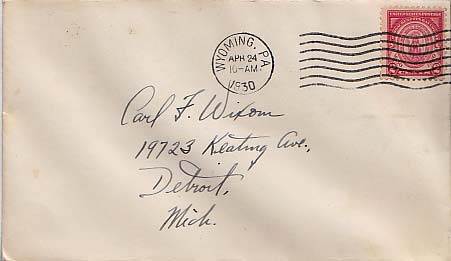 WYOMING, PA.
APR 24
10-AM
1930
UNITED STATES POSTAGE
Carl F. Wixom
19723 Keating Ave.,
Detroit,
Mich.